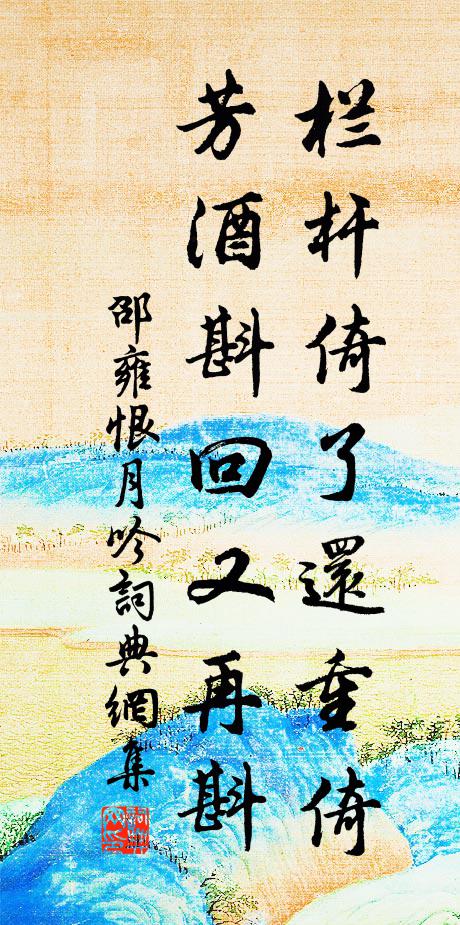 栏杆倚了還重倚
芳酒斟回又再斟
邵雍恨月吟詞典網集